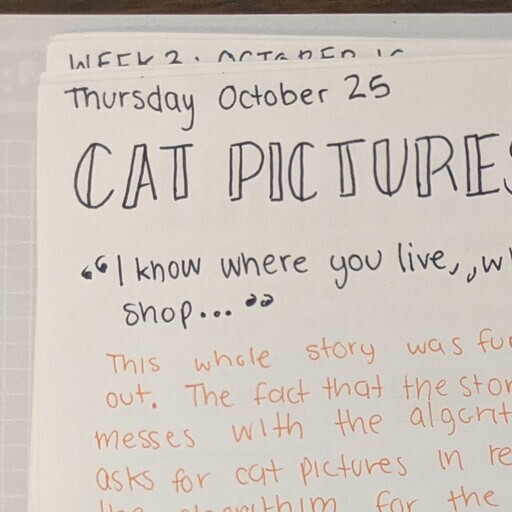 WEEK 2: OCTOBER
Thursday October 25
CAT PICTURES
“I know where you live,, w
shop...”
This whole story was fu
out. The fact that the stor
messes with the algorit
asks for cat pictures in re
algorithim for the